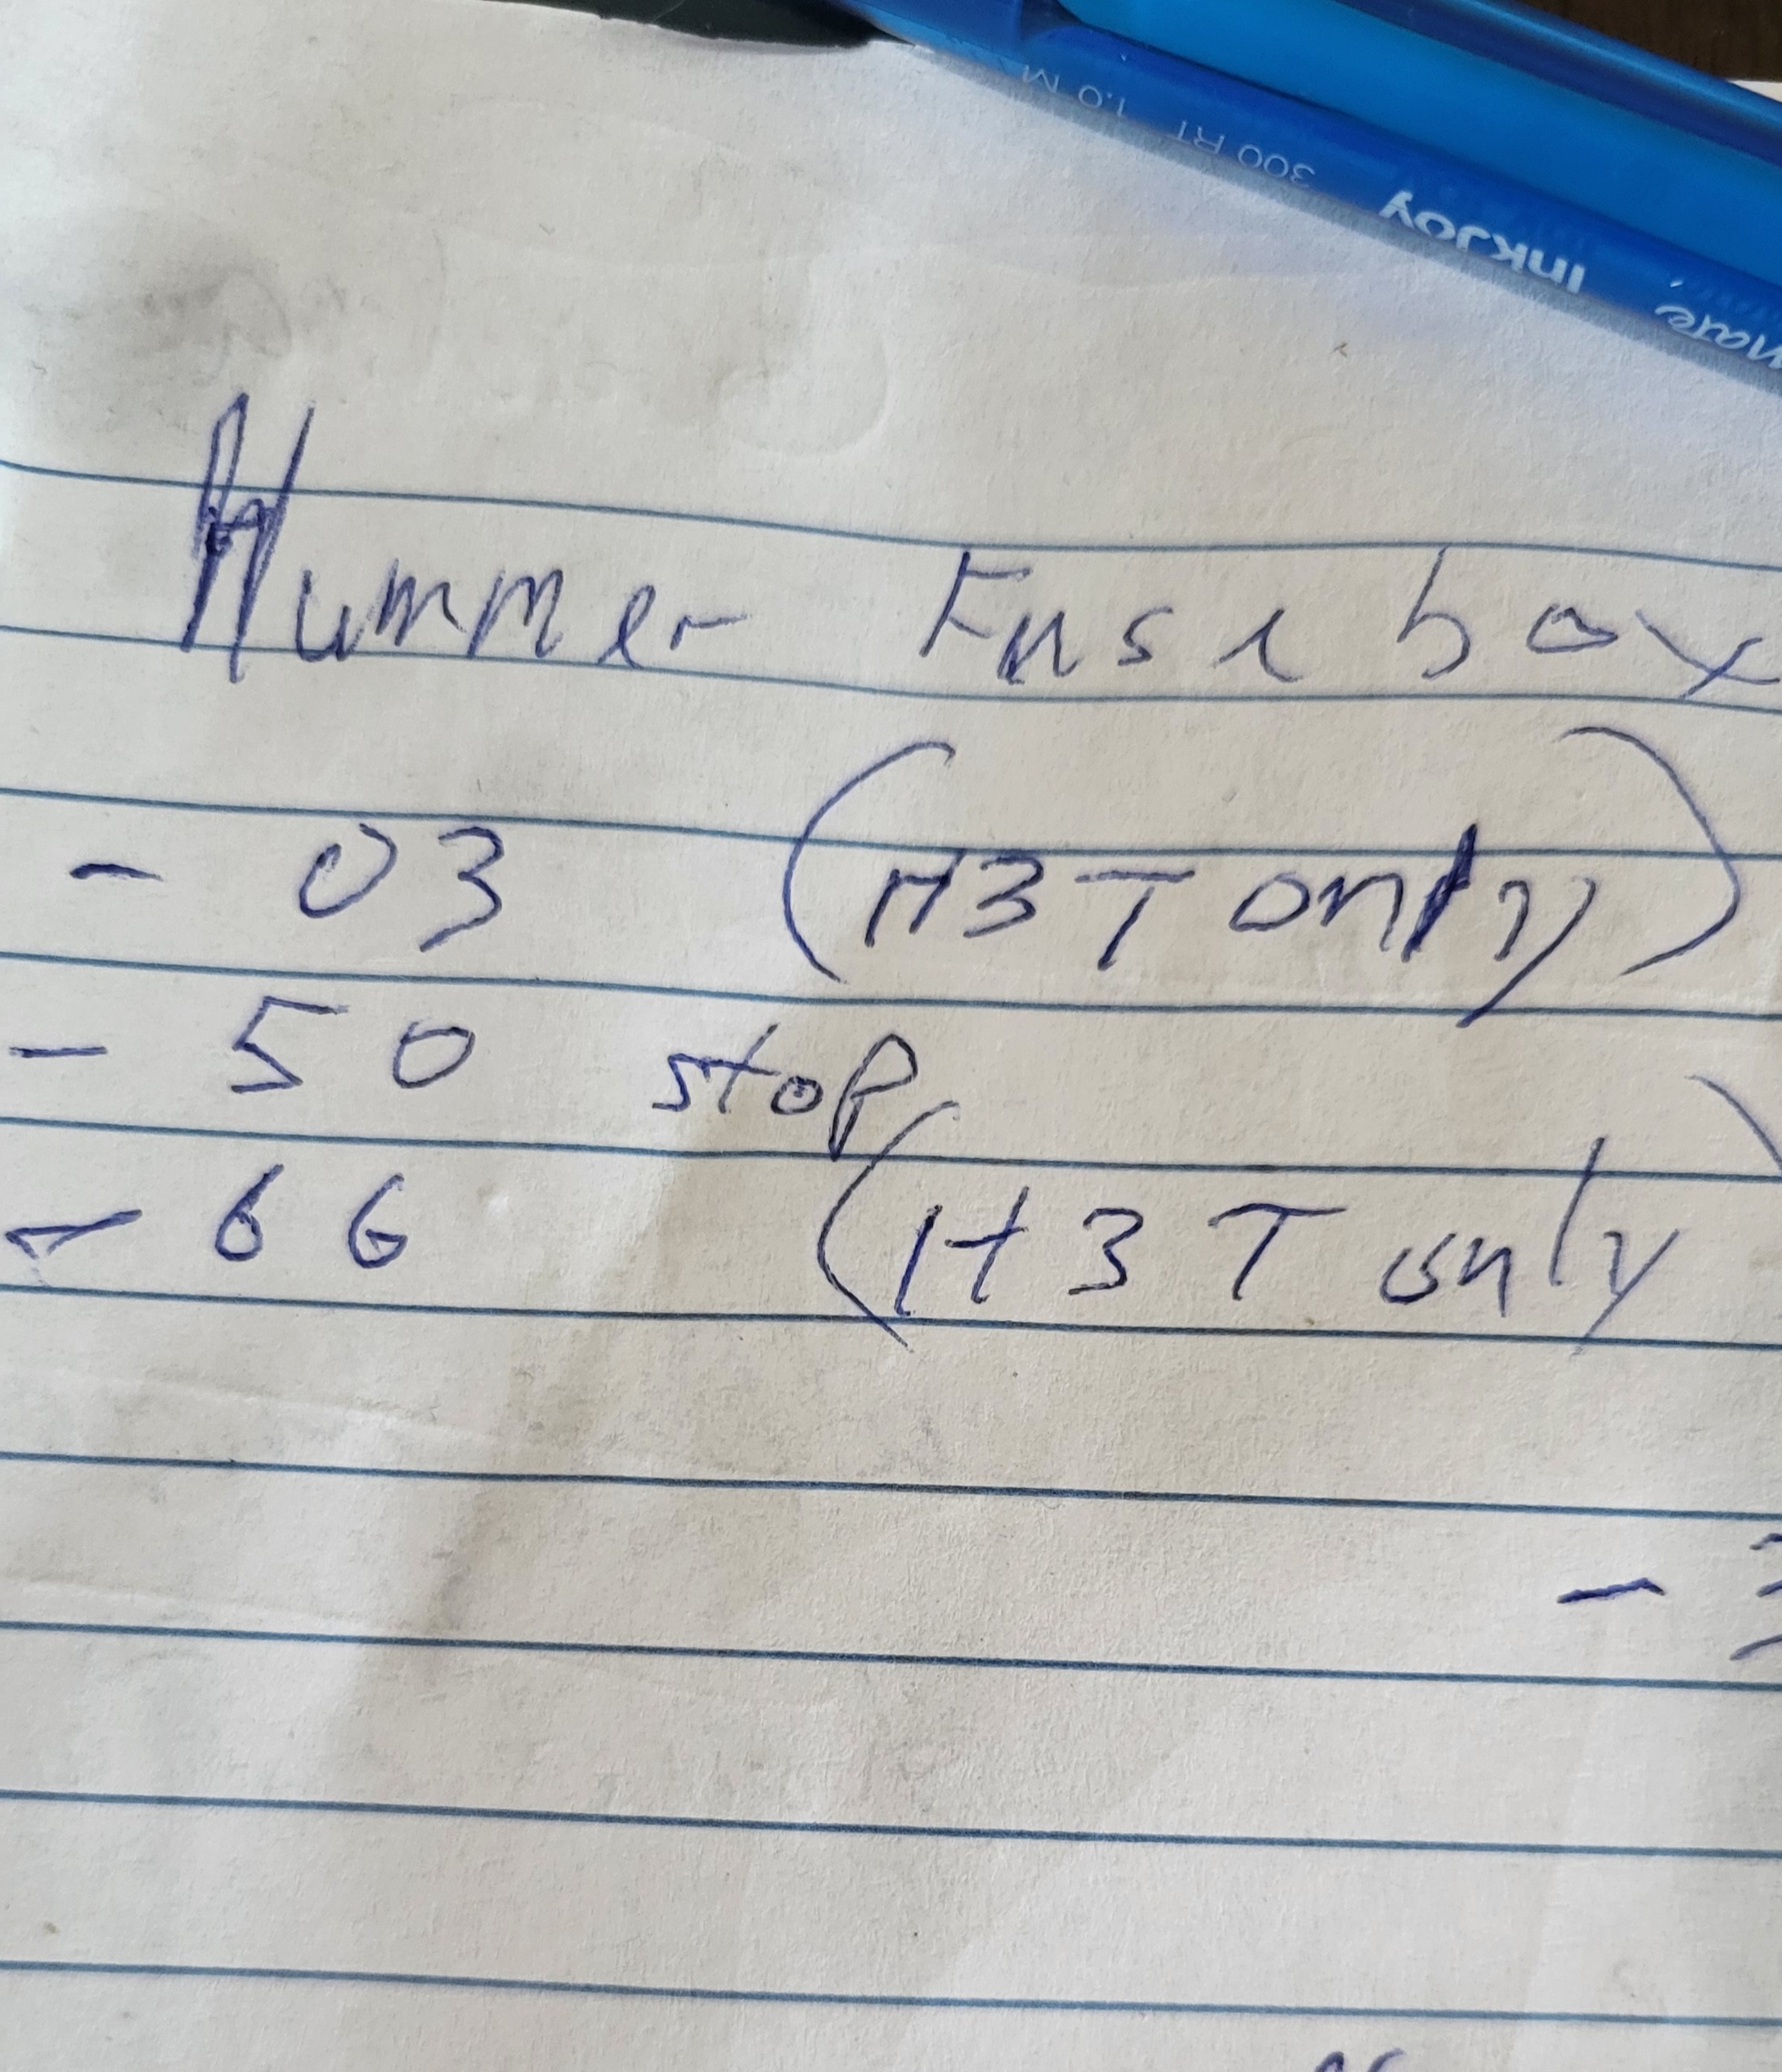 300 RT 1.0 M
InkJoy
Hummer Fuse box
- 03 (H3T only)
- 50 stop
- 66 (H3T only)
-